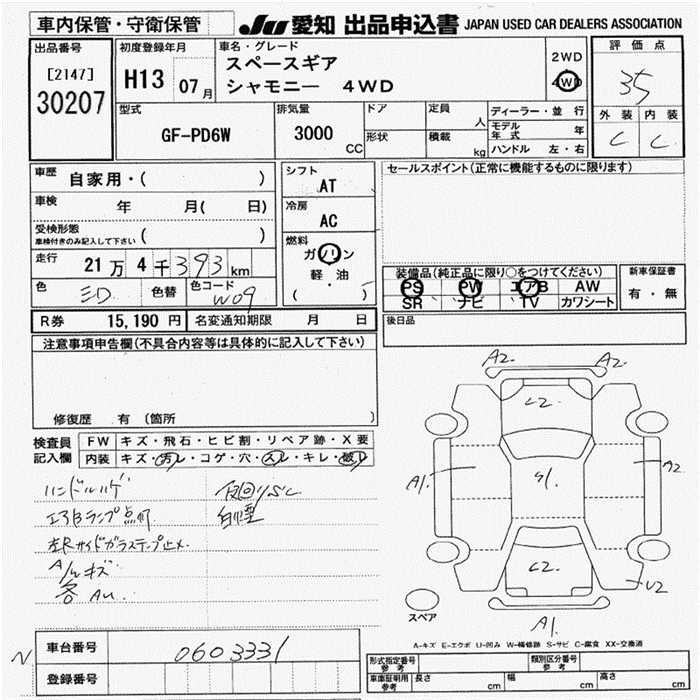 車内保管・守衛保管
JU 愛知 出品申込書 JAPAN USED CAR DEALERS ASSOCIATION
出品番号
[2147]
30207
初度登録年月
H13 07月
車名・グレード
スペースギア
シャモニー 4WD
2WD
4WD
評価点
35
外装 内装
C C
型式
GF-PD6W
排気量
3000
CC
ドア
形状
定員
人
積載
kg
ディーラー・並行
モデル年式 年
ハンドル 左・右
車歴 自家用・( )
車検 年 月( 日)
受検形態
車検付きのみ記入して下さい ( )
走行 21万4千393km
色 色替 色コード W09
シフト
AT
冷房
AC
燃料
ガソリン
軽・油
( )
セールスポイント(正常に機能するものに限ります)
装備品(純正品に限り○をつけてください)
PS PW エアB AW
SR ナビ TV カワシート
新車保証書
有・無
R券 15,190円 名変通知期限 月 日
後日品
注意事項申告欄(不具合内容等は具体的に記入して下さい)
修復歴 有 (箇所 )
検査員
記入欄
FW キズ・飛石・ヒビ割・リペア跡・X要
内装 キズ・汚レ・コゲ・穴・スレ・キレ・破レ
ハンドルハゲ
エアBランプ点灯 白煙
左Rサイドガラステープ止メ
A/Wキズ
各AU
A2 A2
C2
A1 S1 A2
C2
U2
A1
スペア
A-キズ E-エクボ U-凹み W-補修跡 S-サビ C-腐食 XX-交換済
N
車台番号 0603331
登録番号
形式指定番号
参考
類別区分番号
参考
車庫証明用
参考
長さ cm 幅 cm 高さ cm